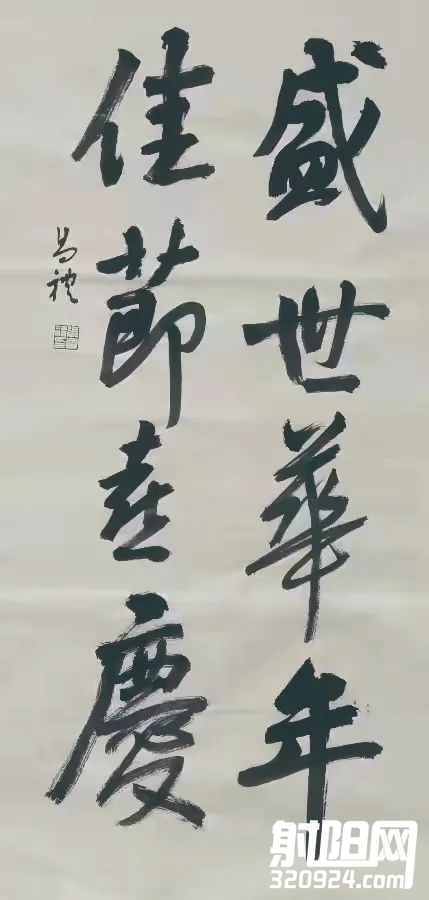 盛世華年
佳節喜慶
昌禮
射阳网
320924.com